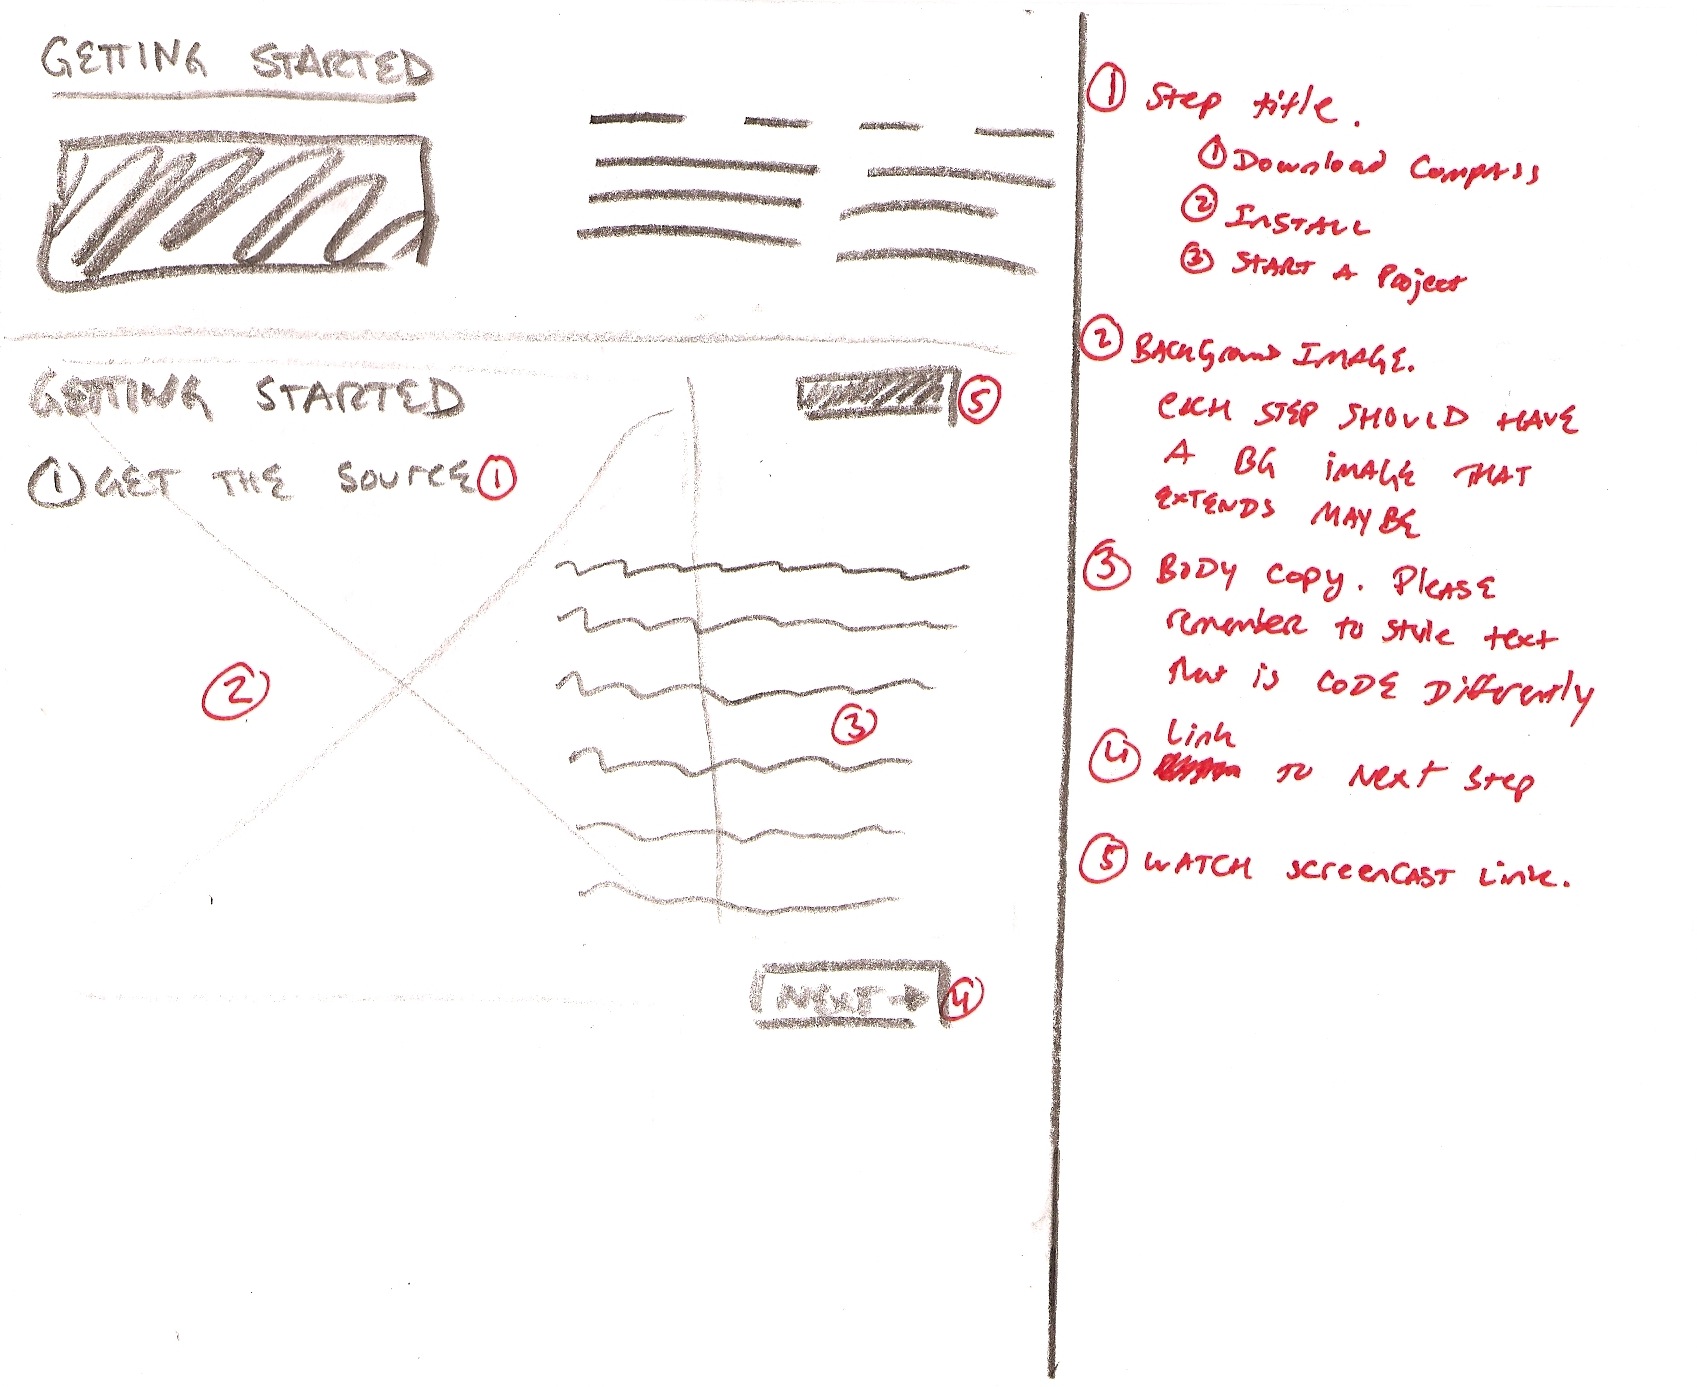 GETTING STARTED
GETTING STARTED
5
① GET THE SOURCE ①
2
3
NEXT → 4
① Step title.
① Download Compass
② INSTALL
③ START A Project
② BACKGround IMAGE.
EACH STEP SHOULD HAVE
A BG IMAGE THAT
EXTENDS MAYBE
③ BODY COPY. PLEASE
remember to style text
that is CODE Differently
④ Link to Next Step
⑤ WATCH screenCAST Link.